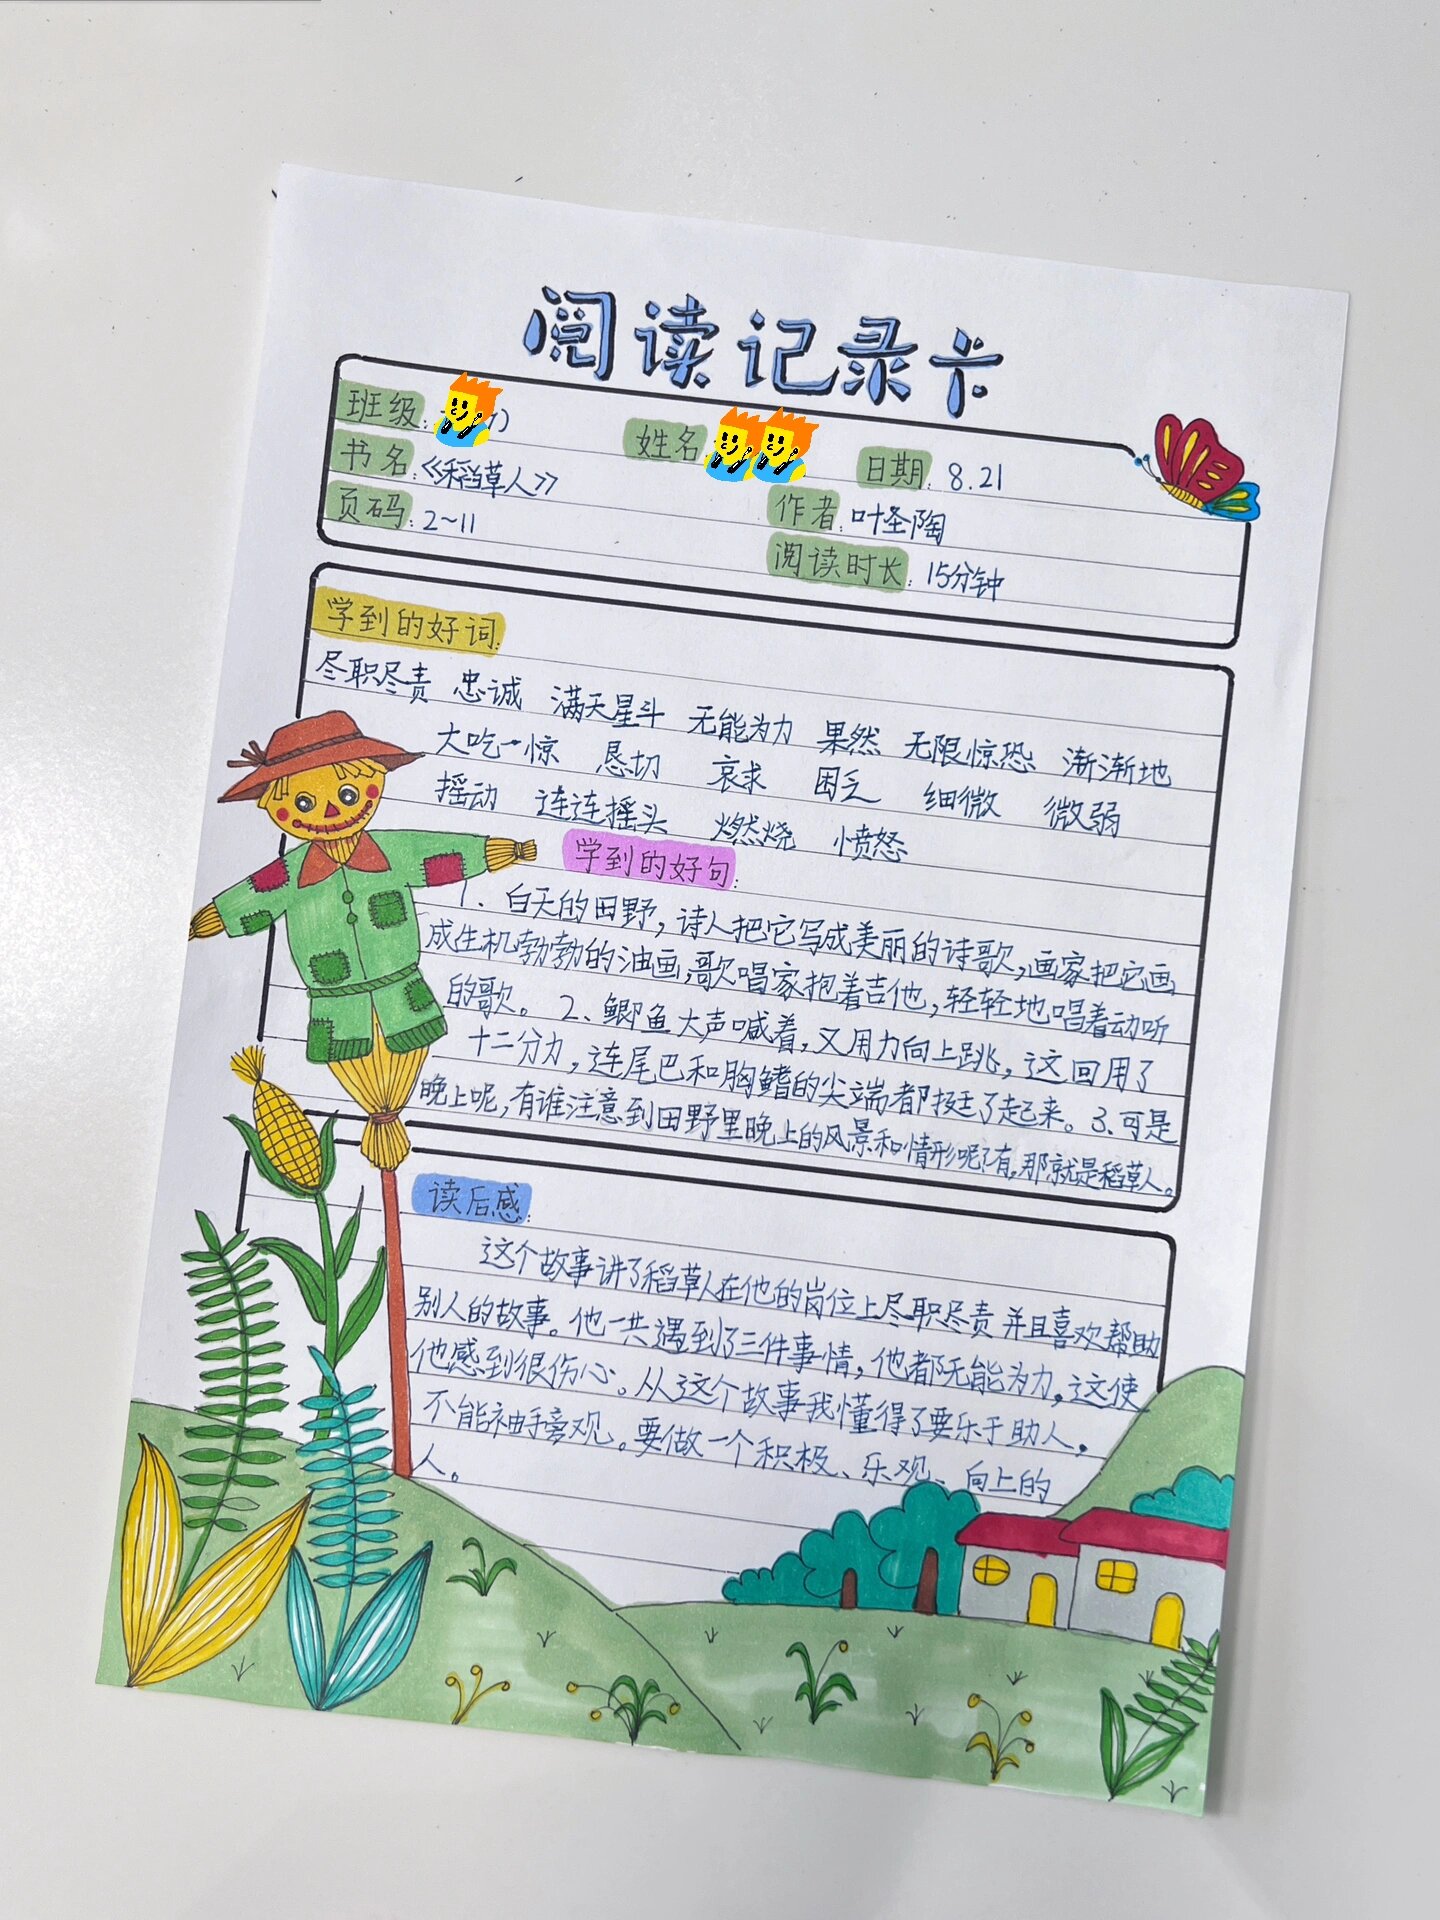 阅读记录卡
班级: 7)
姓名 日期: 8.21
书名:《稻草人》
作者: 叶圣陶
页码: 2~11
阅读时长: 15分钟
学到的好词:
尽职尽责 忠诚 满天星斗 无能为力 果然 无限惊恐 渐渐地
大吃一惊 恳切 哀求 困乏 细微 微弱
摇动 连连摇头 燃烧 愤怒
学到的好句:
1、白天的田野,诗人把它写成美丽的诗歌,画家把它画
成生机勃勃的油画,歌唱家抱着吉他,轻轻地唱着动听
的歌。2、鲫鱼大声喊着,又用力向上跳,这回用了
十二分力,连尾巴和胸鳍的尖端都挺了起来。3、可是
晚上呢,有谁注意到田野里晚上的风景和情形呢?有,那就是稻草人。
读后感:
这个故事讲了稻草人在他的岗位上尽职尽责并且喜欢帮助
别人的故事。他一共遇到了三件事情,他都无能为力,这使
他感到很伤心。从这个故事我懂得了要乐于助人,
不能袖手旁观。要做一个积极、乐观、向上的
人。